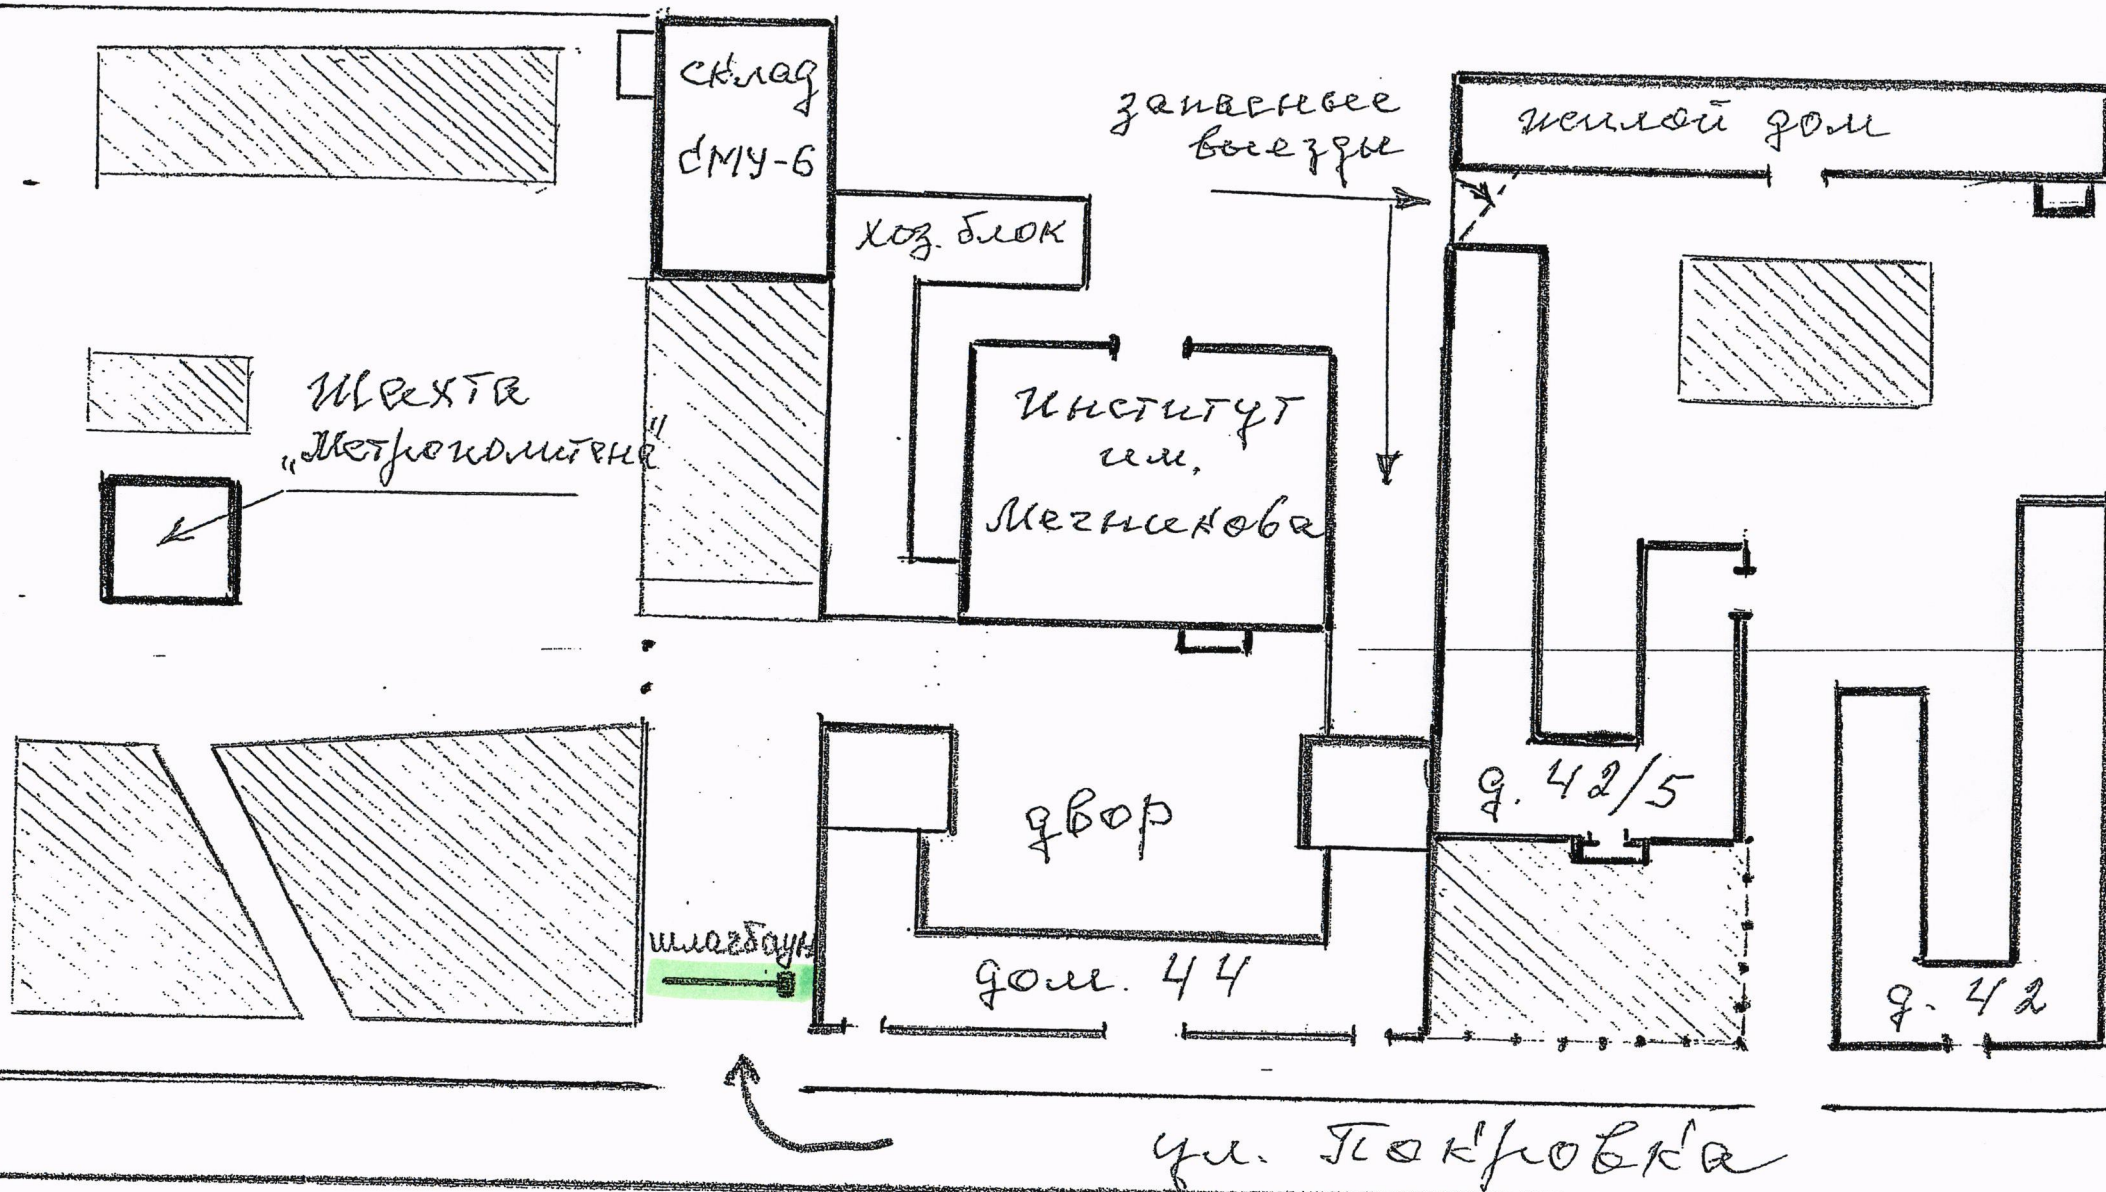 склад
СМУ-6
хоз. блок
запасные
выезды
жилой дом
Шахта
„Метрополитена"
Институт
им.
Мечникова
двор
д. 42/5
шлагбаум
дом. 44
д. 42
ул. Покровка